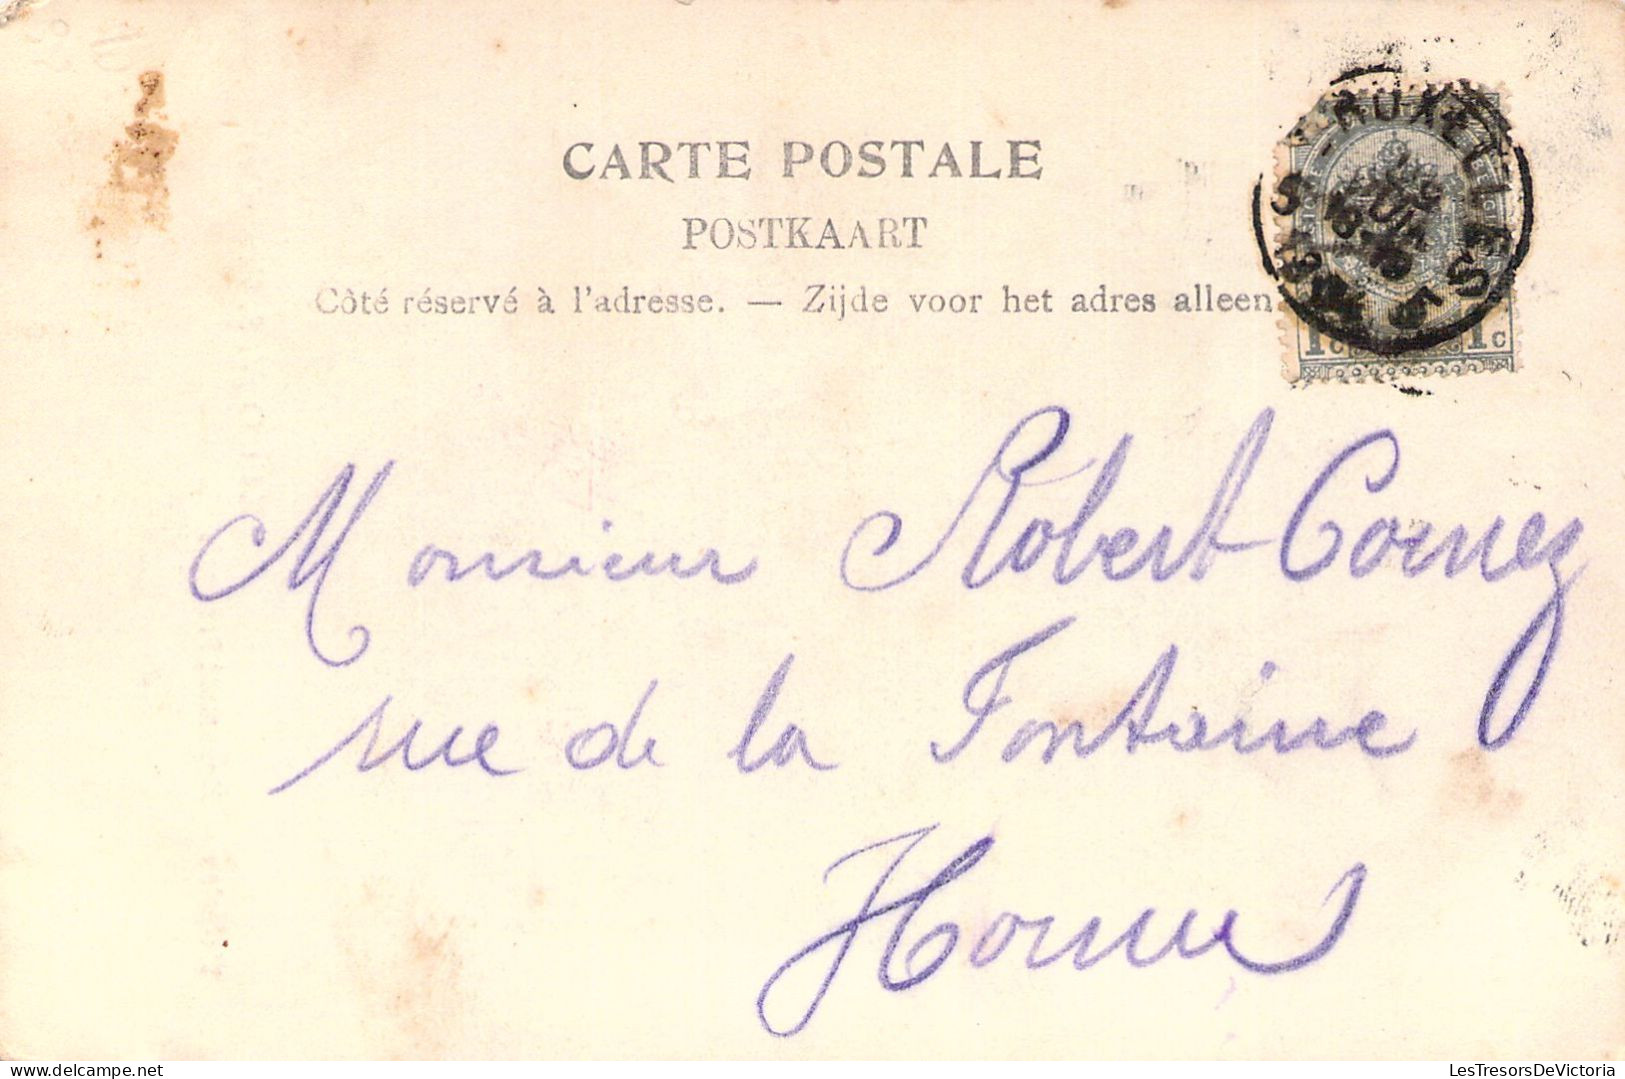 CARTE POSTALE
POSTKAART
Côté réservé à l'adresse. — Zijde voor het adres alleen
1c 1c
Monsieur Robert Cornez
rue de la Fontaine
Hornu
LesTresorsDeVictoria